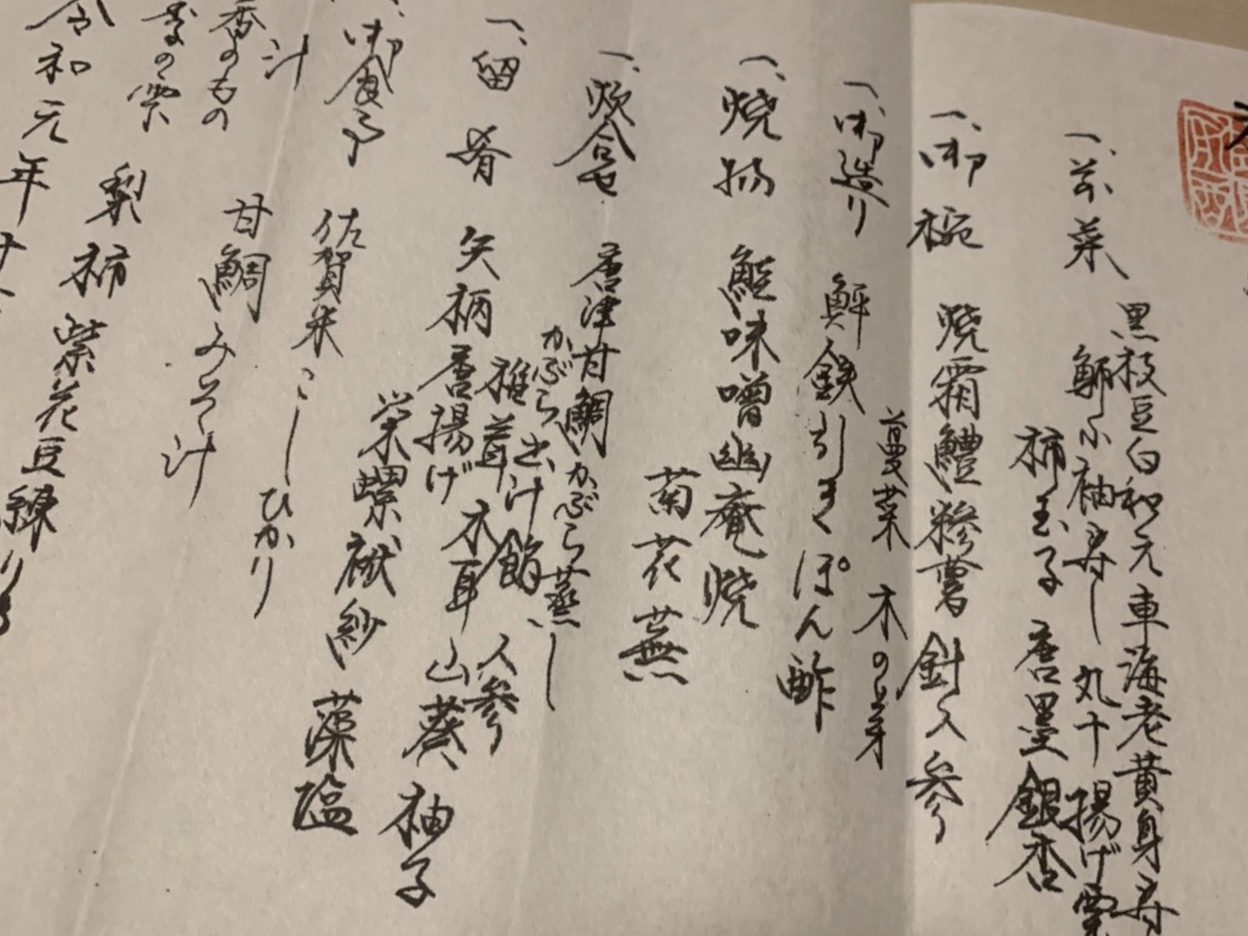 一、前菜
黒枝豆白和え 車海老黄身寿
小袖寿し 丸十 揚げ栗
柿玉子 唐墨 銀杏
一、御椀
焼霜鱧糝薯 針人参
蔓菜 木の芽
一、御造り
鉄引き ぽん酢
一、焼物
鮭味噌幽庵焼
菊花蕪
一、炊合せ
唐津甘鯛かぶら蒸し
かぶら出汁餡 人参
椎茸 木耳 山葵 柚子
一、留肴
矢柄唐揚げ
栄螺袱紗 藻塩
一、御食事
佐賀米こしひかり
汁
甘鯛みそ汁
香のもの
季の雫
梨 柿 紫花豆練り
令和元年